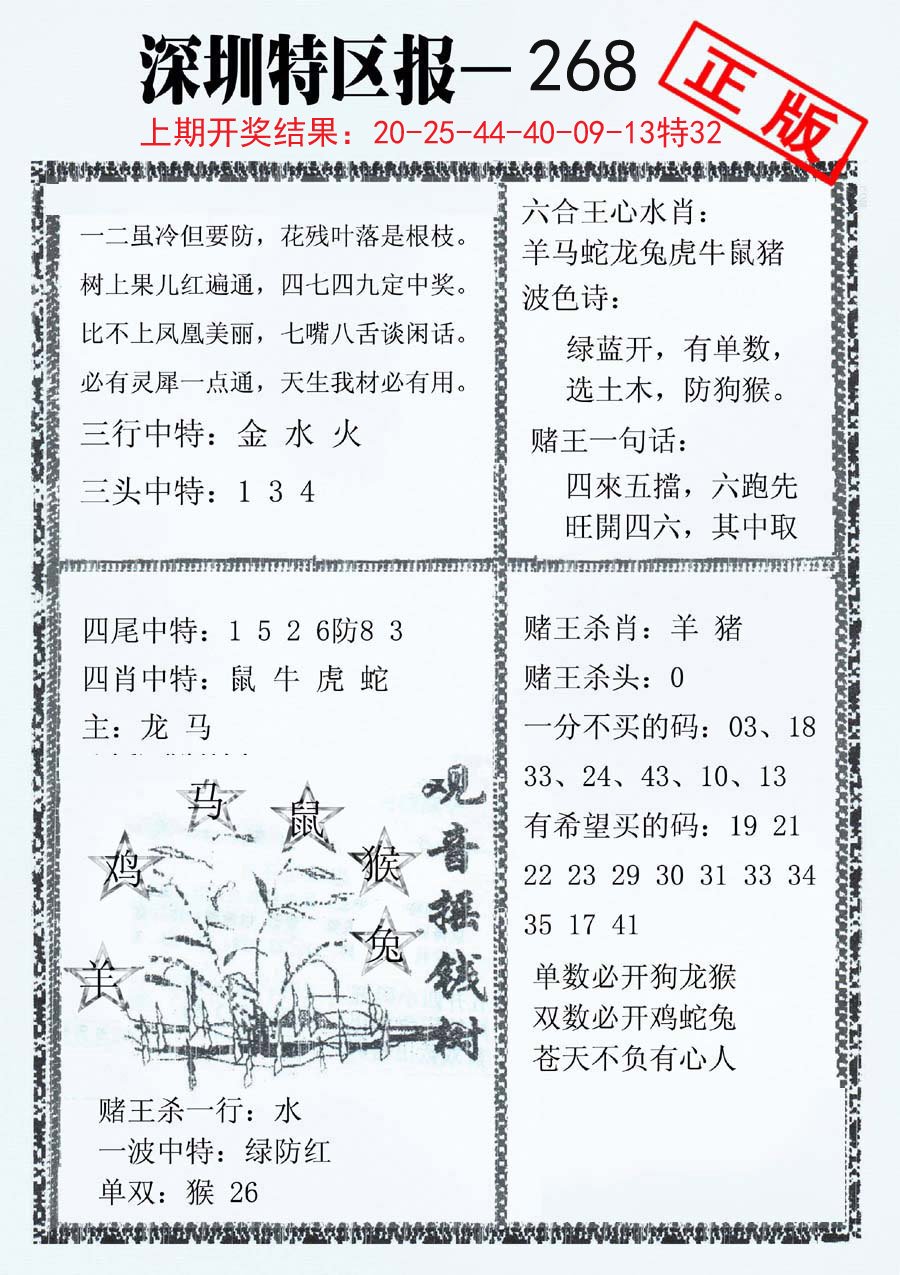 深圳特区报—268
正版
上期开奖结果：20-25-44-40-09-13特32
一二虽冷但要防，花残叶落是根枝。
树上果儿红遍通，四七四九定中奖。
比不上凤凰美丽，七嘴八舌谈闲话。
必有灵犀一点通，天生我材必有用。
三行中特：金 水 火
三头中特：1 3 4
六合王心水肖：
羊马蛇龙兔虎牛鼠猪
波色诗：
绿蓝开，有单数，
选土木，防狗猴。
赌王一句话：
四來五擋，六跑先
旺開四六，其中取
四尾中特：1 5 2 6防8 3
四肖中特：鼠 牛 虎 蛇
主：龙 马
马
鼠
鸡
猴
羊
兔
观音摇钱树
赌王杀一行：水
一波中特：绿防红
单双：猴 26
赌王杀肖：羊 猪
赌王杀头：0
一分不买的码：03、18
33、24、43、10、13
有希望买的码：19 21
22 23 29 30 31 33 34
35 17 41
单数必开狗龙猴
双数必开鸡蛇兔
苍天不负有心人